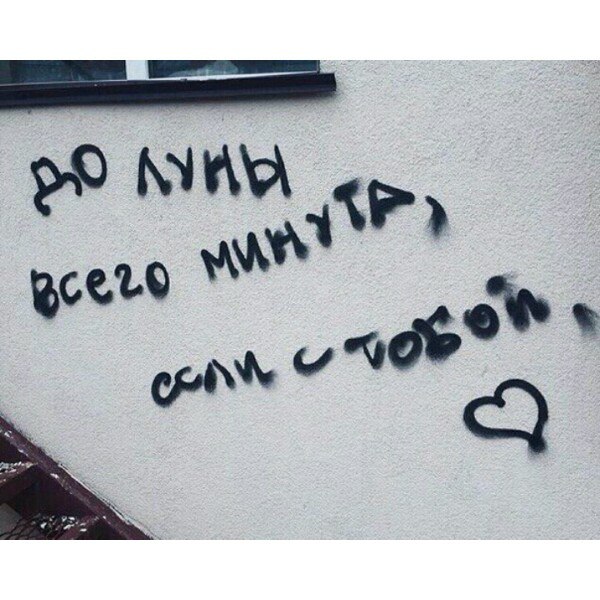 до луны
всего минута,
если с тобой,